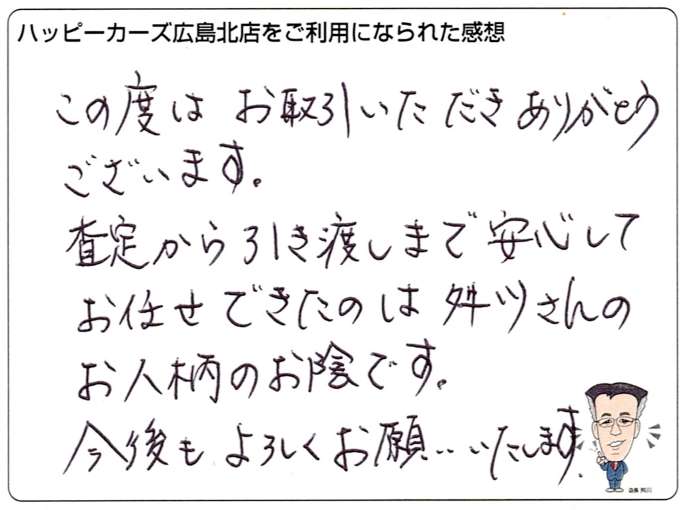 ハッピーカーズ広島北店をご利用になられた感想
この度は お取引いただき ありがとう
ございます。
査定から引き渡しまで安心して
お任せできたのは さんの
お人柄のお陰です。
今後もよろしくお願いいたします。
店長